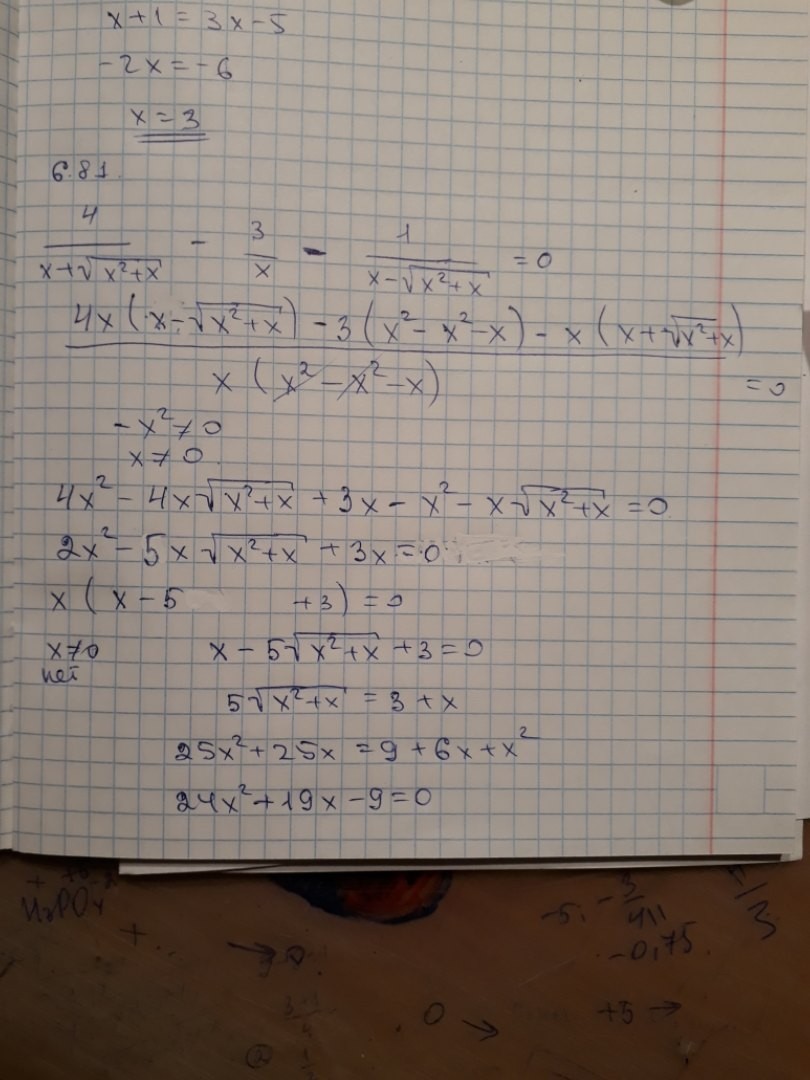 x+1 = 3x-5
-2x = -6
x = 3
6.81.
4/(x+√(x²+x)) - 3/x - 1/(x-√(x²+x)) = 0
(4x(x-√(x²+x)) - 3(x²-x²-x) - x(x+√(x²+x)))/(x(x²-x²-x)) = 0
-x²≠0
x≠0
4x² - 4x√(x²+x) + 3x - x² - x√(x²+x) = 0
2x² - 5x√(x²+x) + 3x = 0
x(x-5 +3) = 0
x≠0 x - 5√(x²+x) + 3 = 0
нет
5√(x²+x) = 3+x
25x²+25x = 9+6x+x²
24x²+19x-9=0
-5, -3/4
-0,75
H₃PO₄
+
→
0 → +5 →